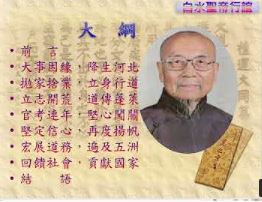 白水聖帝行誼
大綱
• 前言
• 大事因緣，降生河北
• 拋家捨業，立身行道
• 立志開荒，道傳蓬萊
• 官考連年，心悅闖關
• 堅定信心，再度揚帆
• 宏展道務，遍及五洲
• 回饋社會，貢獻國家
• 結語